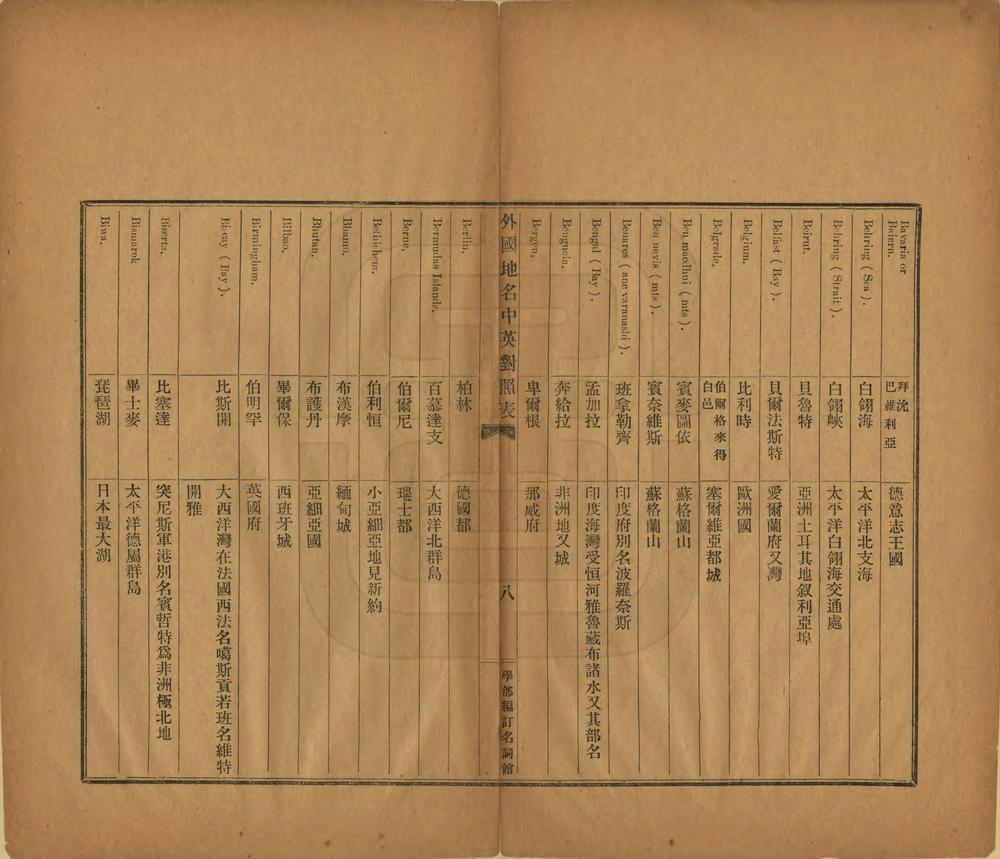 Bavaria or Baiern. 拜沇 巴維利亞 德意志王國
Behring (Sea). 白翎海 太平洋北支海
Behring (Strait). 白翎峽 太平洋白翎海交通處
Beirut. 貝魯特 亞洲土耳其地敘利亞埠
Belfast (Bay). 貝爾法斯特 愛爾蘭府又灣
Belgium. 比利時 歐洲國
Belgrade. 伯爾格來得 白邑 塞爾維亞都城
Ben maedhui (mts). 賓麥圖依 蘇格蘭山
Ben nevis (mts). 賓奈維斯 蘇格蘭山
Benares (anc varanashi). 班拿勒齊 印度府別名波羅奈斯
Bengal (Bay). 孟加拉 印度海灣受恒河雅魯藏布諸水又其部名
Benguela. 奔給拉 非洲地又城
Bergen. 卑爾根 那威府
外國地名中英對照表
八
學部編訂名詞館
Berlin. 柏林 德國都
Bermudas Islands. 百慕達支 大西洋北群島
Berne. 伯爾尼 瑞士都
Bethlehem. 伯利恒 小亞細亞地見新約
Bhamo. 布漢摩 緬甸城
Bhutan. 布護丹 亞細亞國
Bilbao. 畢爾保 西班牙城
Birmingham. 伯明罕 英國府
Biscay (Bay). 比斯開 大西洋灣在法國西法名噶斯貢若班名維特
開雅
Biserta. 比塞達 突尼斯軍港別名賓哲特爲非洲極北地
Bismarck 畢士麥 太平洋德屬群島
Biwa. 琵琶湖 日本最大湖